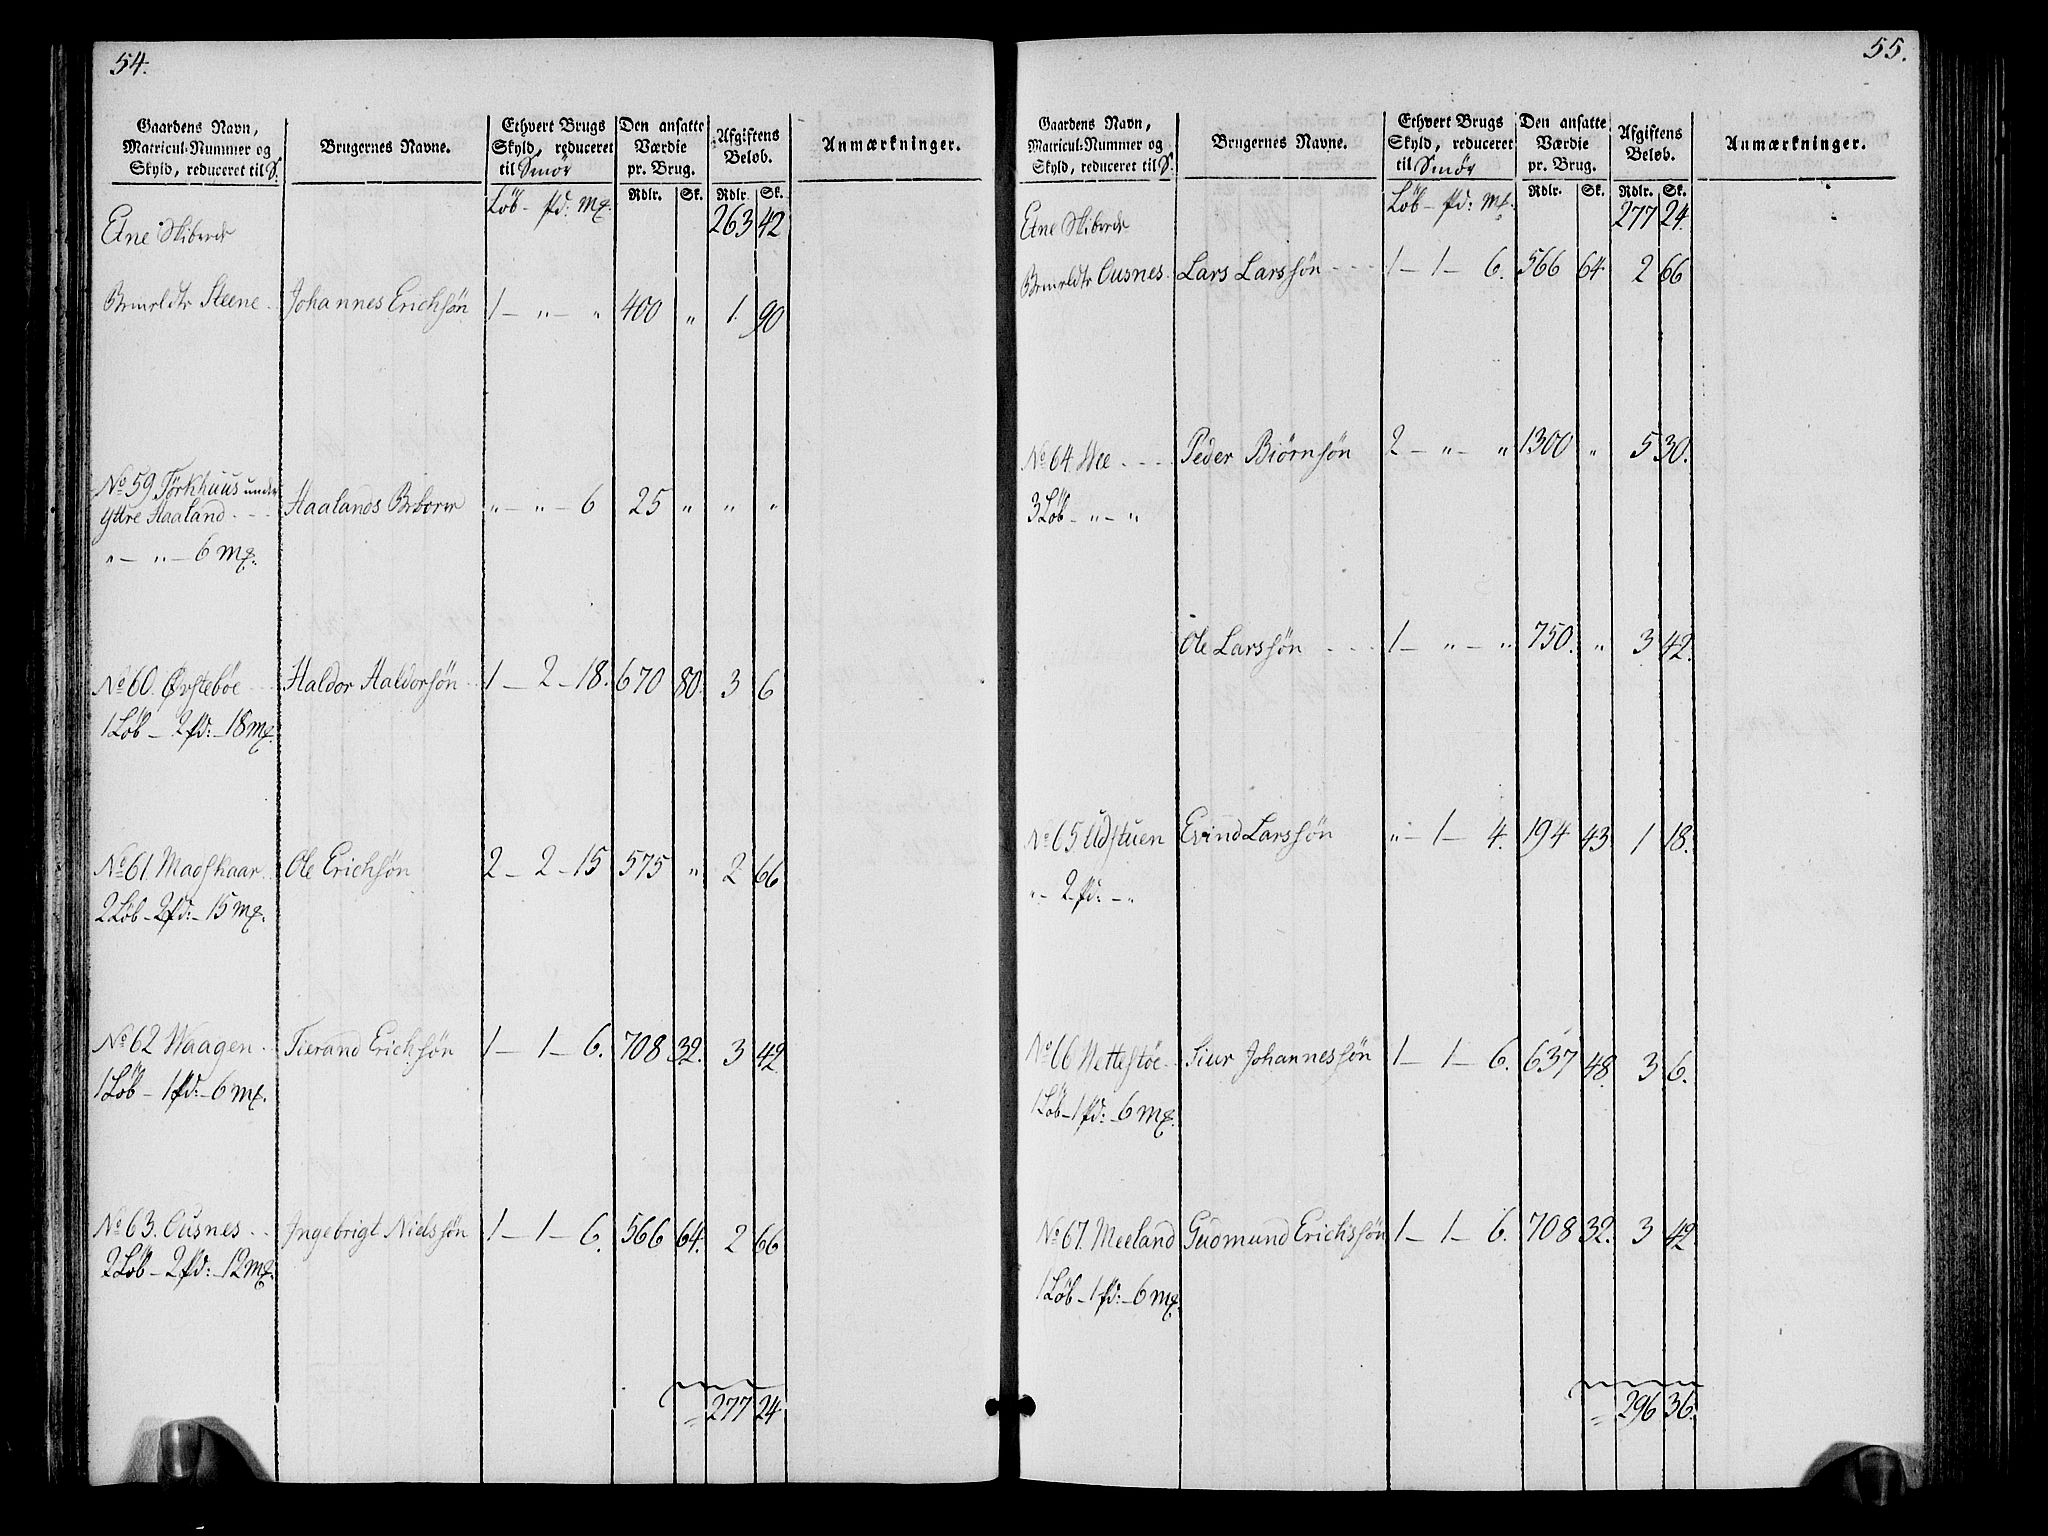 54.
Gaardens Navn, Matricul-Nummer og Skyld, reduceret til S. | Brugernes Navne. | Ethvert Brugs Skyld, reduceret til Smör | Den ansatte Værdie pr. Brug. | Afgiftens Beløb. | Anmærkninger.
Löb - pd: mk. | Rdlr. | Sk. | Rdlr. | Sk.
Etne Skibrede 263 42
Steene Johannes Erichsøn 1 - " - " 400 " 1 90
No 59 Törkhuus under Haalands " - " - 6 25 " " "
Yttre Haaland
" - " - 6 mk.
No 60. Ørsteböe Haldor Haldorsön 1 - 2 - 18. 670 80. 3 6
1 Löb - 2 pd: - 18 mk.
No 61. Madskaar Ole Erichsøn 2 - 2 - 15 575 " 2 66
2 Löb - 2 pd: - 15 mk.
No 62 Waagen Tierand Erichsøn 1 - 1 - 6. 708 32. 3 42
1 Löb - 1 pd: - 6 mk.
No 63. Ousnes Ingebrigt Nielssøn 1 - 1 - 6. 566 64. 2 66
2 Löb - 2 pd: - 12 mk.
= 277 24
55.
Gaardens Navn, Matricul-Nummer og Skyld, reduceret til S. | Brugernes Navne. | Ethvert Brugs Skyld, reduceret til Smör | Den ansatte Værdie pr. Brug. | Afgiftens Beløb. | Anmærkninger.
Löb - pd: mk. | Rdlr. | Sk. | Rdlr. | Sk.
Etne Skibrede 277 24.
Ousnes Lars Larssön 1 - 1 - 6. 566 64 2 66
No 64. Wee Peder Biörnsön 2 - " - " 1300 " 5 30.
3 Löb - " - "
Ole Larssön 1 - " - " 750. " 3 42.
No 65 Udstuen Evind Larssön " - 1 - 4. 194 43 1 18.
" - 2 pd: - "
No 66 Wettestöe Siur Johannessön 1 - 1 - 6. 637 48. 3 6.
1 Löb - 1 pd: - 6 mk.
No 67. Meeland Gudmund Erichssøn 1 - 1 - 6. 708 32. 3 42
1 Löb - 1 pd: - 6 mk.
= 296 36.